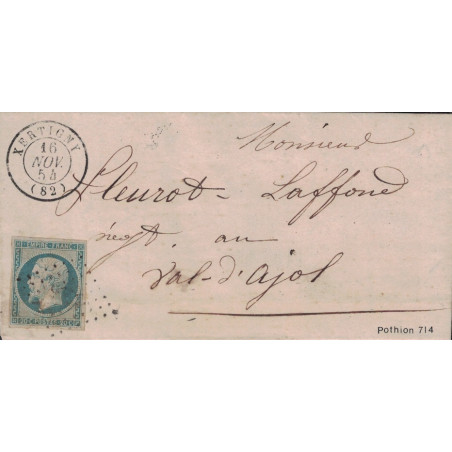 XERTIGNY
16
NOV.
54
(82)
Monsieur
Fleurot-Laffond
négt. au
Val-d'Ajol
EMPIRE-FRANC
20 C POSTES 20 C
Pothion 714